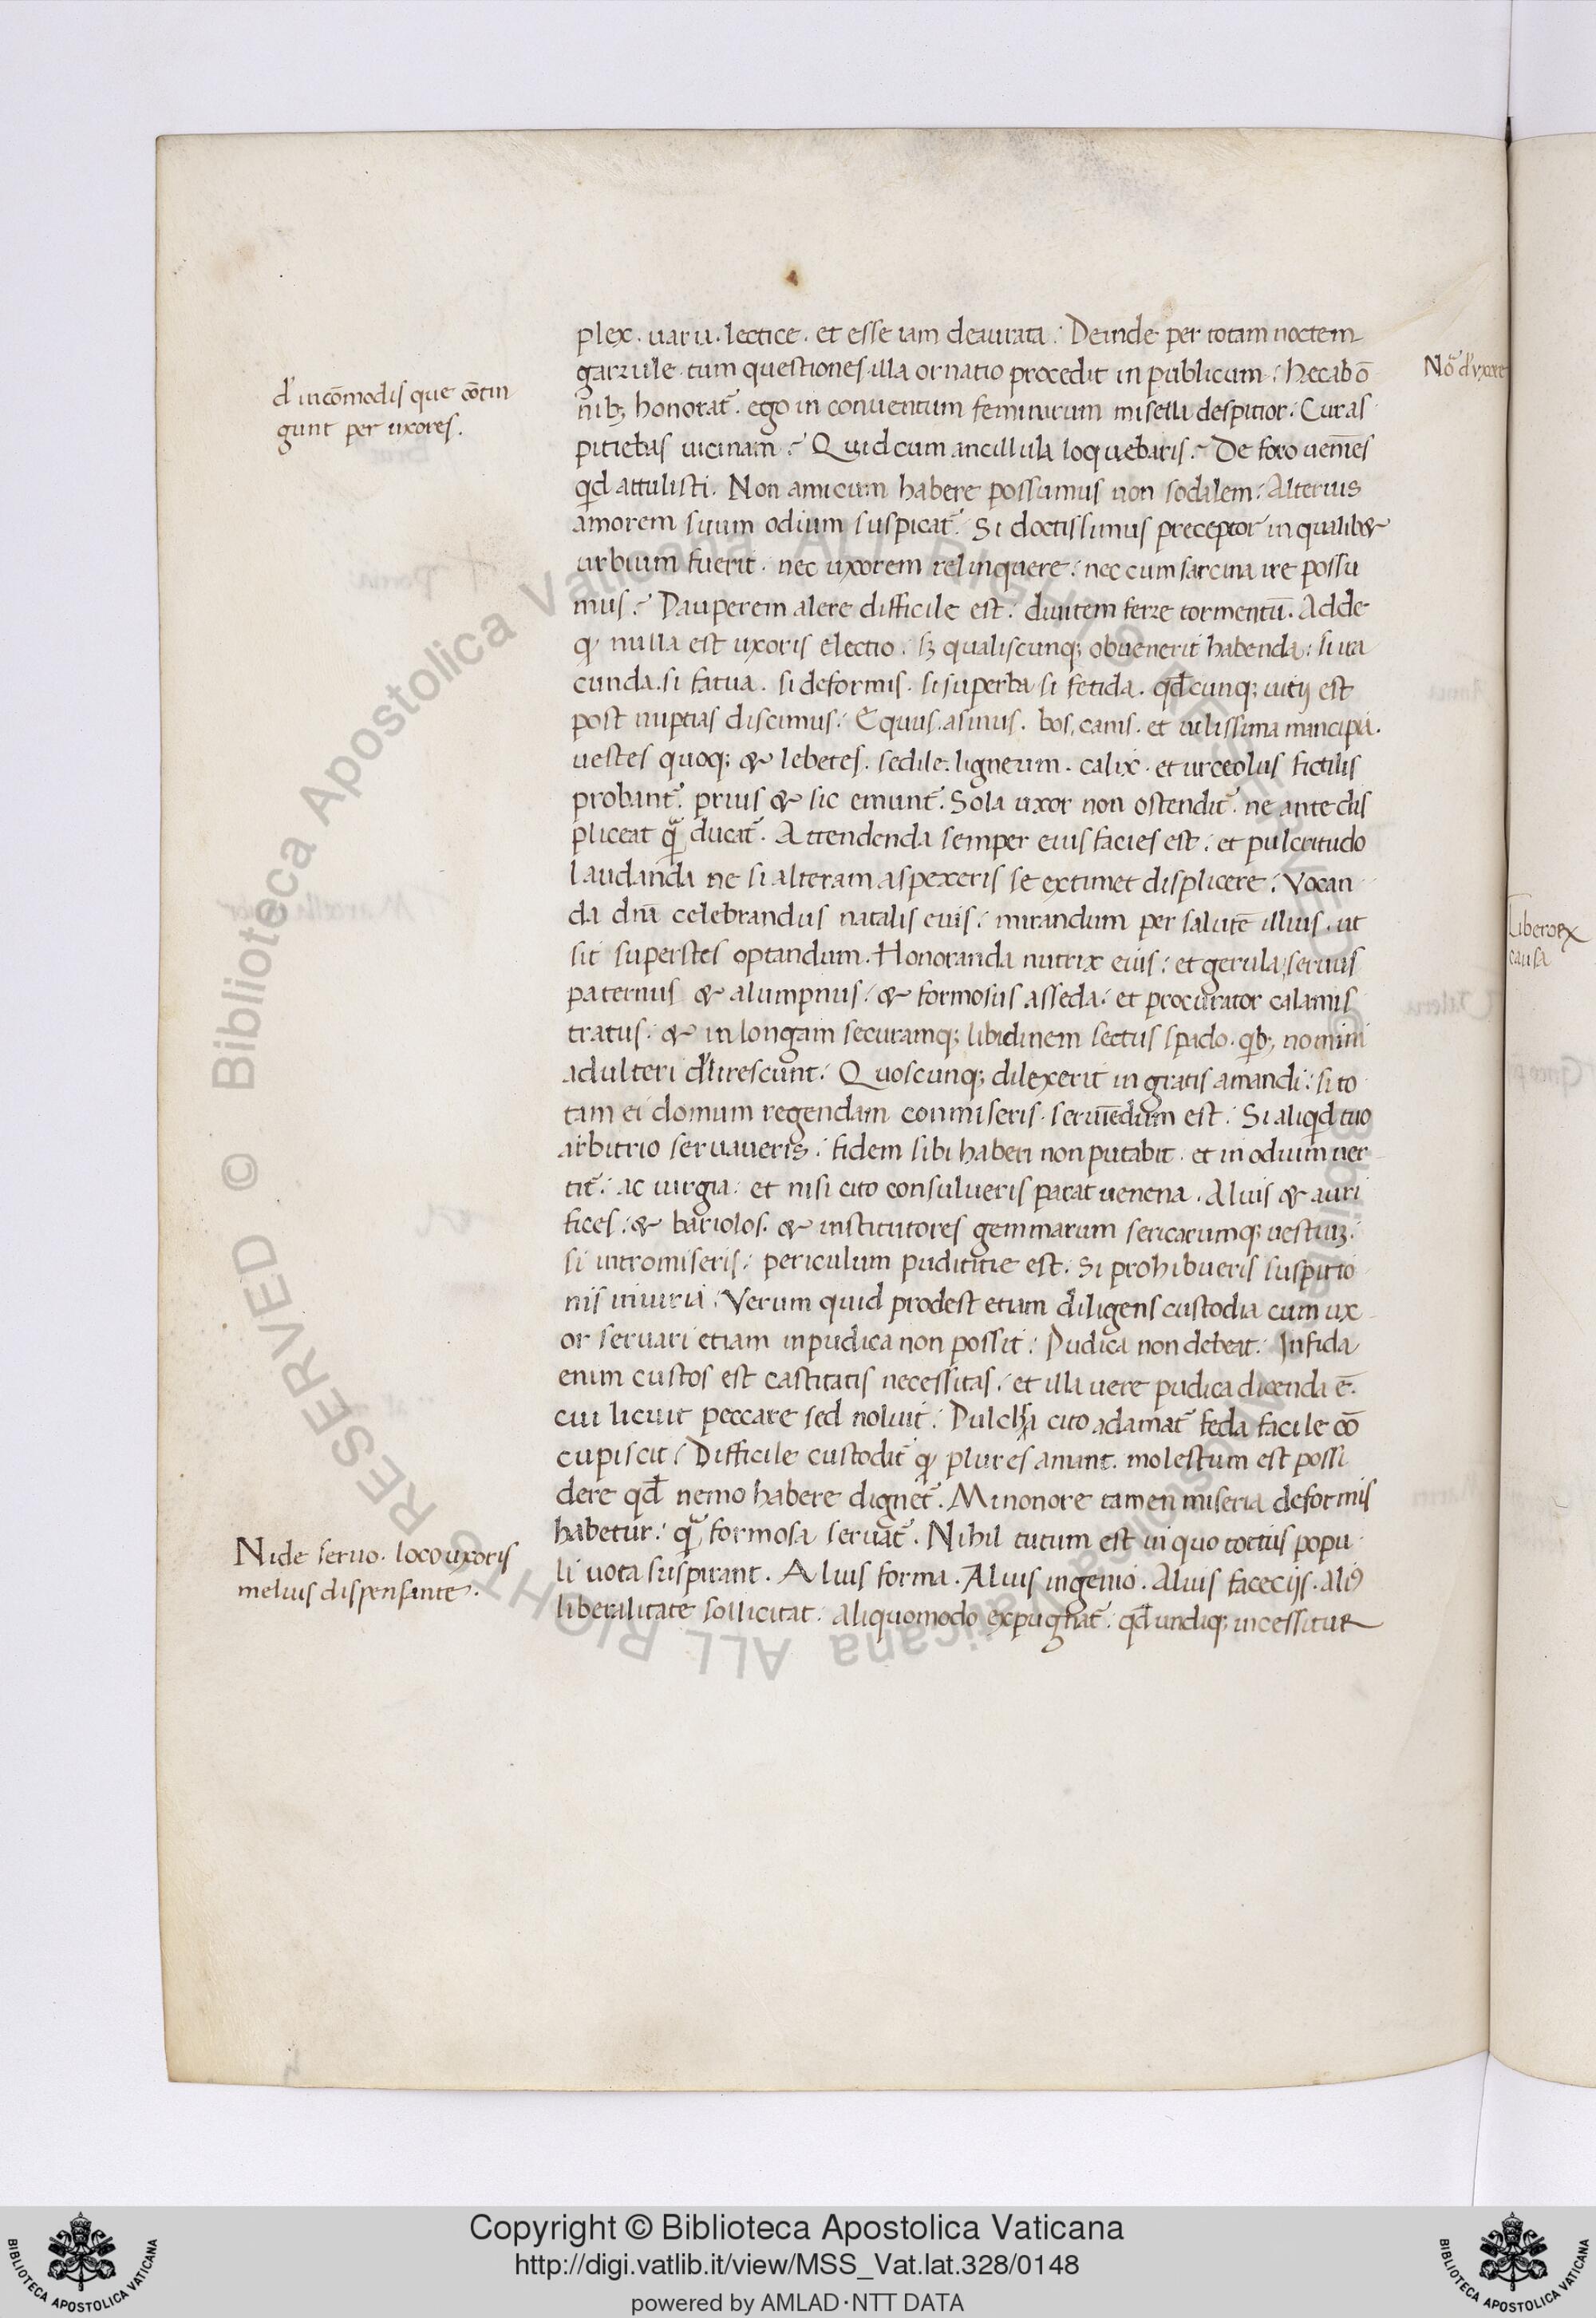 plex. uaru. lectice. et esse iam deaurata: Deinde per totam noctem
garrule. tum questiones. illa ornatio procedit in publicum: hec ab o̅
nib; honorat̃. ego in conuentum feminarum misella despitior: Cur as
pitiebas uicinam? Quid cum ancillula loquebaris? De foro uenie̅s
qd̅ attulisti. Non amicum habere possumus non sodalem: Alterius
amorem suum odium suspicat̃. Si doctissimus preceptor in qualib&
urbium fuerit. nec uxorem relinquere: nec cum sarcina ire possu
mus? Pauperem alere difficile est: diuitem ferre tormentu̅. Adde
ꝙ nulla est uxoris electio: sꝫ qualiscunq; obuenerit habenda: si ira
cunda. si fatua. si deformis. si superba si fetida. qd̅cunq; uitij est
post nuptias discimus: Equus. asinus. bos, canis. et uilissima mancipia.
uestes quoq; & lebetes. sedile. ligneum. calix. et urceolus fictilis
probant̃. prius & sic emunt̃. Sola uxor non ostendit̃. ne ante dis
pliceat qͣ ducat̃. Attendenda semper eius facies est: et pulcritudo
laudanda ne si alteram aspexeris se extimet displicere: Vocan
da dn̅a celebrandus natalis eius: mirandum per salute̅ illius. ut
sit superstes optandum. Honoranda nutrix eius: et gerula, seruus
paternus & alumpnus: & formosus asseda: et procurator calamis
tratus: & in longam securamq; libidinem sectus spado. qib; nomini
adulteri dlirescunt: Quoscunq; dilexerit in gratis amandi: si to
tam ei domum regendam conmiseris. seruie̅dum est: Si aliqd tuo
arbitrio seruaueris: fidem sibi haberi non putabit. et in odium uer
tit̃: ac iurgia: et nisi cito consulueris parat uenena. Aluis & auri
fices: & bariolos. & institutores gemmarum sericarumq; uestiuꝫ:
si intromiseris: periculum pudititie est. Si prohibueris suspitio
nis iniuria: Verum quid prodest etiam diligens custodia cum ux
or seruari etiam inpudica non possit: Pudica non debeat: Infida
enim custos est castitatis necessitas: et illa uere pudica dicenda e̅.
cui licuit peccare sed noluit: Pulchra cito adamat̃ feda facile co̅
cupiscit: Difficile custodit̃ ꝙ plures amant. molestum est possi
dere qd̅ nemo habere dignet̃. Minonore tamen miseria deformis
habetur: qͣ formosa seruat̃. Nihil tutum est in quo totius popu
li uota suspirant. Aluis forma. Aluis ingenio. Aluis facecijs. aliꝰ
liberalitate sollicitat: aliquomodo expugnat̃: qd̅ undiq; incessitur
d' inco̅modis que co̅tin
gunt per uxores.
N ide seruo. loco uxoris
melius dispensante.
No̅ d' uxore
Liberorꝝ
causa
© Biblioteca Apostolica Vaticana ALL RIGHTS RESERVED
Copyright © Biblioteca Apostolica Vaticana
http://digi.vatlib.it/view/MSS_Vat.lat.328/0148
powered by AMLAD·NTT DATA
BIBLIOTECA APOSTOLICA VATICANA
BIBLIOTECA APOSTOLICA VATICANA